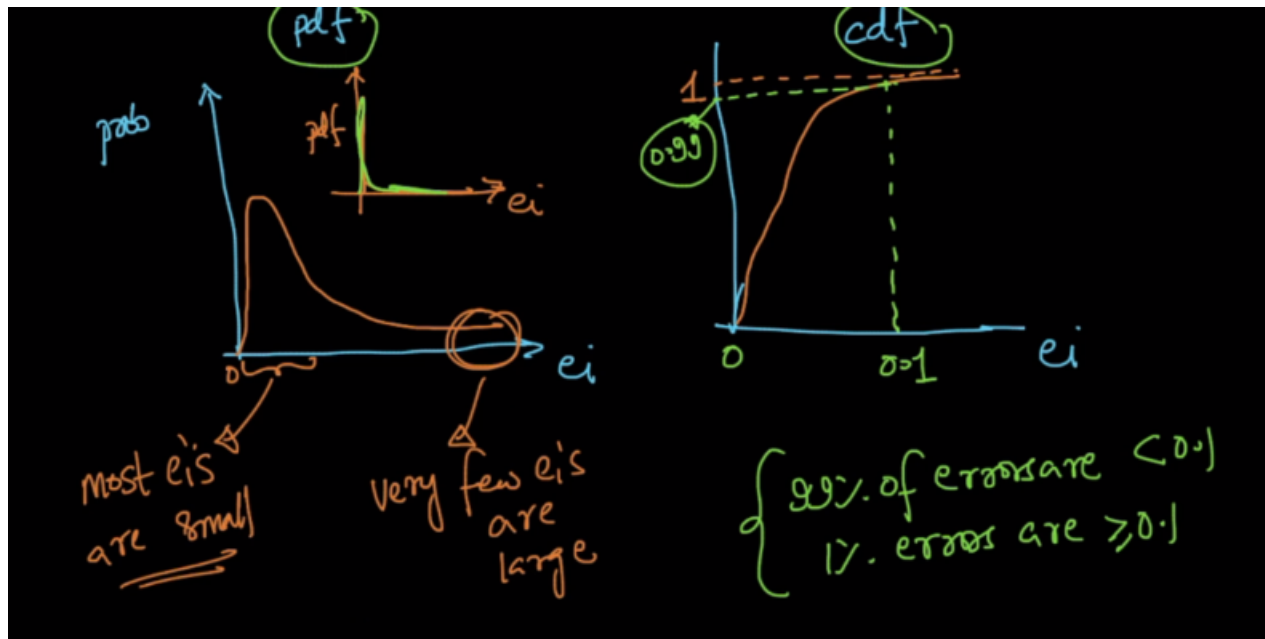 pdf
prob
pdf
ei
0
ei
most ei's
are small
very few ei's
are
large
cdf
1
0.99
0
0.1
ei
99%. of errors are <0.1
1%. errors are ≥0.1